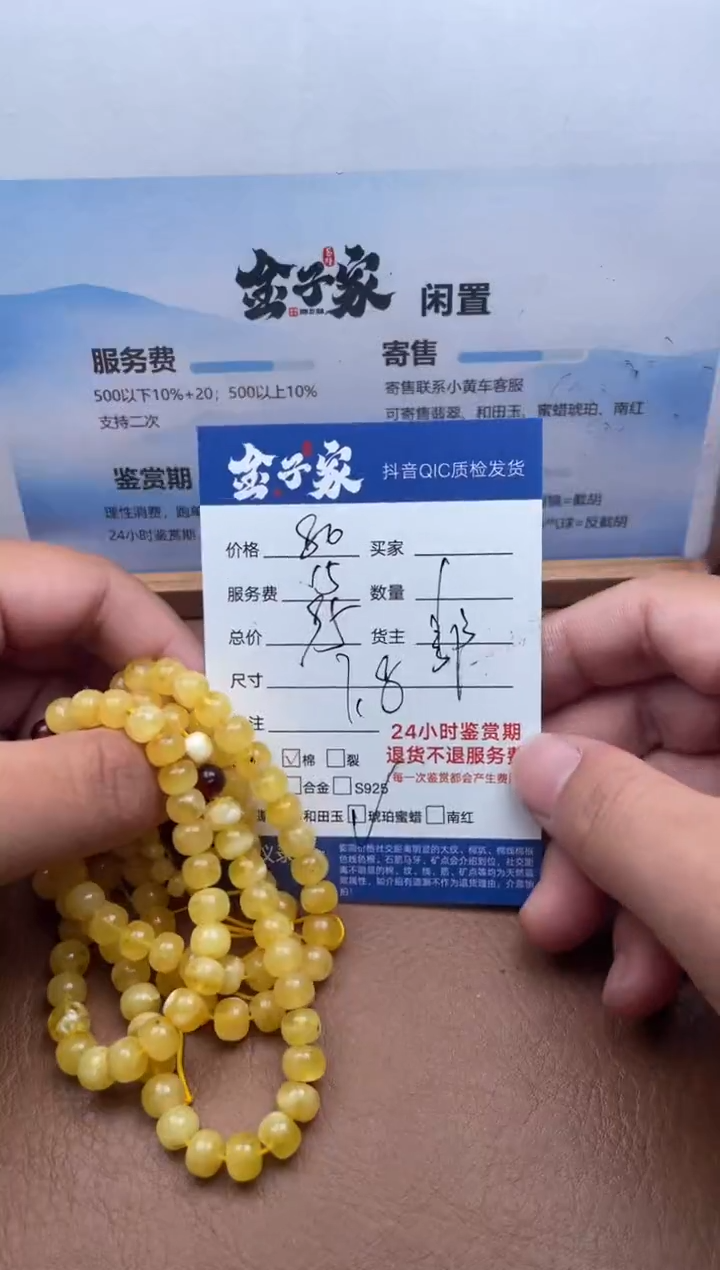 金子家 闲置
服务费
500以下10%+20；500以上10%
支持二次
寄售
寄售联系小黄车客服
可寄售翡翠、和田玉、蜜蜡琥珀、南红
鉴赏期
理性消费，跑单
24小时鉴赏期
=截胡
气球=反截胡
金子家 抖音QIC质检发货
价格 80 买家
服务费 15 数量 1
总价 95 货主
尺寸 7.8
注
24小时鉴赏期
退货不退服务费
每一次鉴赏都会产生费
棉 裂
合金 S925
和田玉 琥珀蜜蜡 南红